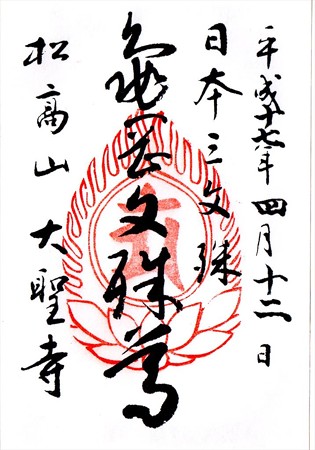 平成十七年四月十二日
日本三文殊
亀岡文殊尊
松高山 大聖寺